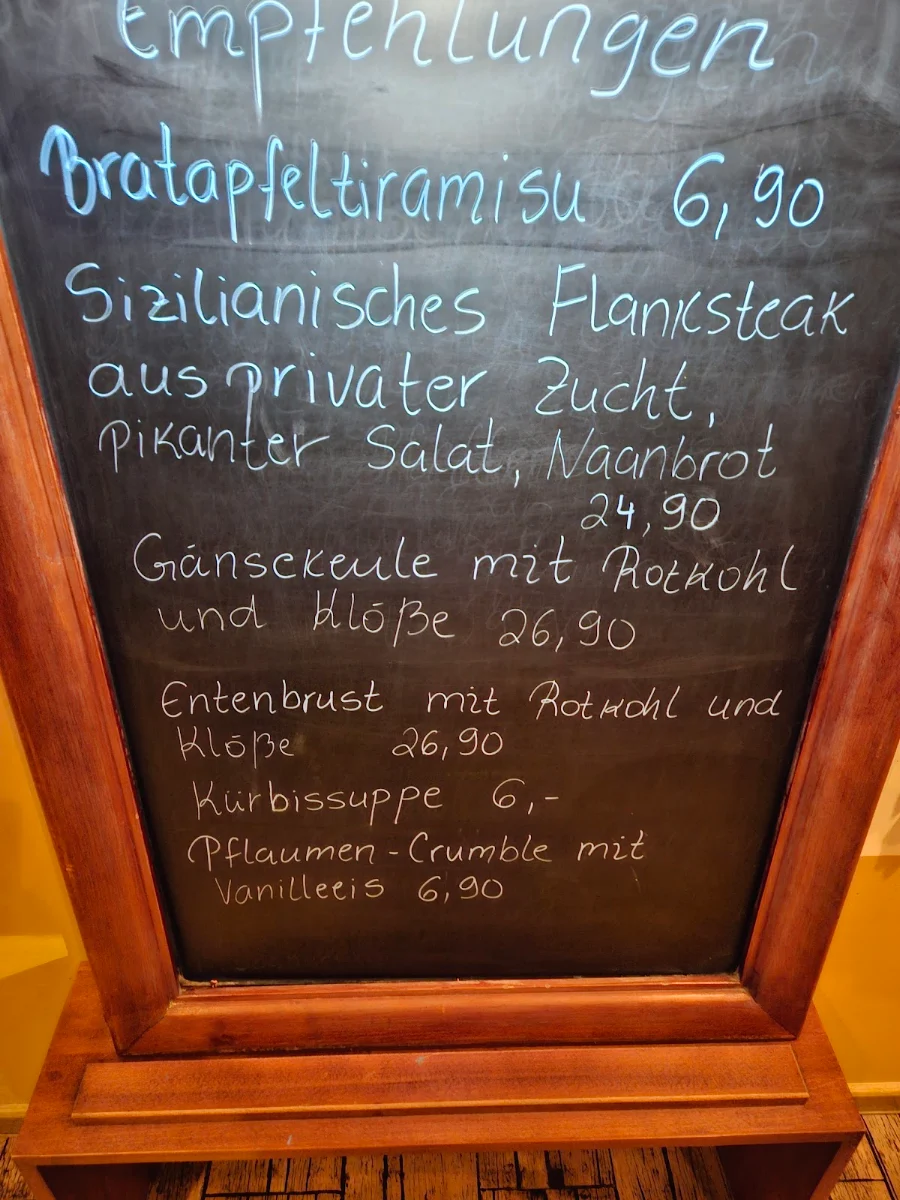 Empfehlungen
Bratapfeltiramisu 6,90
Sizilianisches Flanksteak
aus privater Zucht,
pikanter Salat, Naanbrot
24,90
Gänsekeule mit Rotkohl
und Klöße 26,90
Entenbrust mit Rotkohl und
Klöße 26,90
Kürbissuppe 6,-
Pflaumen-Crumble mit
Vanilleeis 6,90